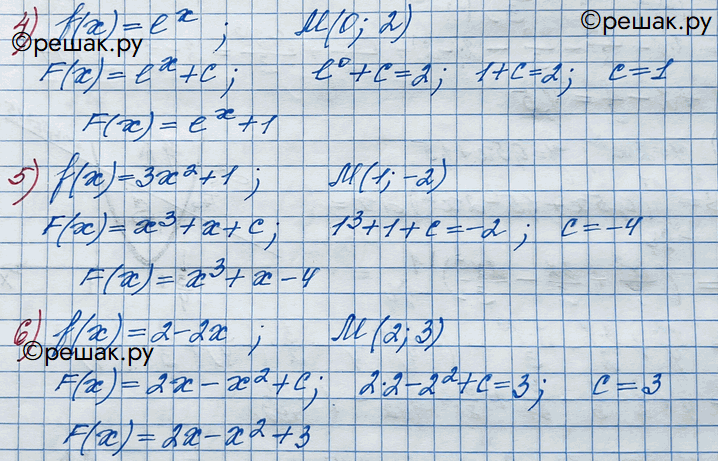 4) f(x)=e^x ; M(0; 2)
©решак.ру
©решак.ру
F(x)=e^x+C; e^0+C=2; 1+C=2; C=1
F(x)=e^x+1
5) f(x)=3x²+1 ; M(1; -2)
F(x)=x³+x+C; 1³+1+C=-2 ; C=-4
F(x)=x³+x-4
6) f(x)=2-2x ; M(2; 3)
©решак.ру
F(x)=2x-x²+C; 2·2-2²+C=3; C=3
F(x)=2x-x²+3